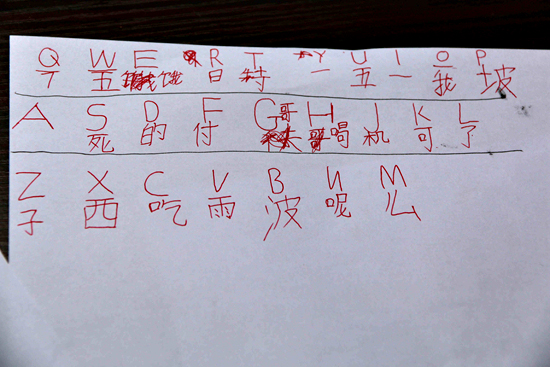 Q W E R T Y U I O P
五 饿 日 特 一 五 一 我 坡
A S D F G H J K L
死 的 付 哥 喝 机 可 了
Z X C V B N M
子 西 吃 雨 波 呢 么